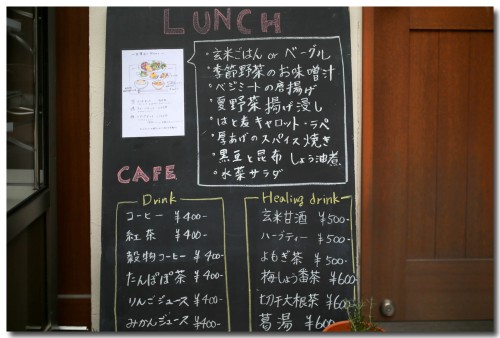 LUNCH
・玄米ごはん or ベーグル
・季節野菜のお味噌汁
・ベジミートの唐揚げ
・夏野菜揚げ浸し
・はと麦キャロット・ラペ
・厚あげのスパイス焼き
・黒豆と昆布 しょう油煮
・水菜サラダ
CAFE
Drink
コーヒー ¥400-
紅茶 ¥400-
穀物コーヒー ¥400-
たんぽぽ茶 ¥400-
りんごジュース ¥400-
みかんジュース ¥400-
Healing drink
玄米甘酒 ¥500-
ハーブティー ¥500-
よもぎ茶 ¥500-
梅しょう番茶 ¥600-
切干大根茶 ¥600-
葛湯 ¥600-